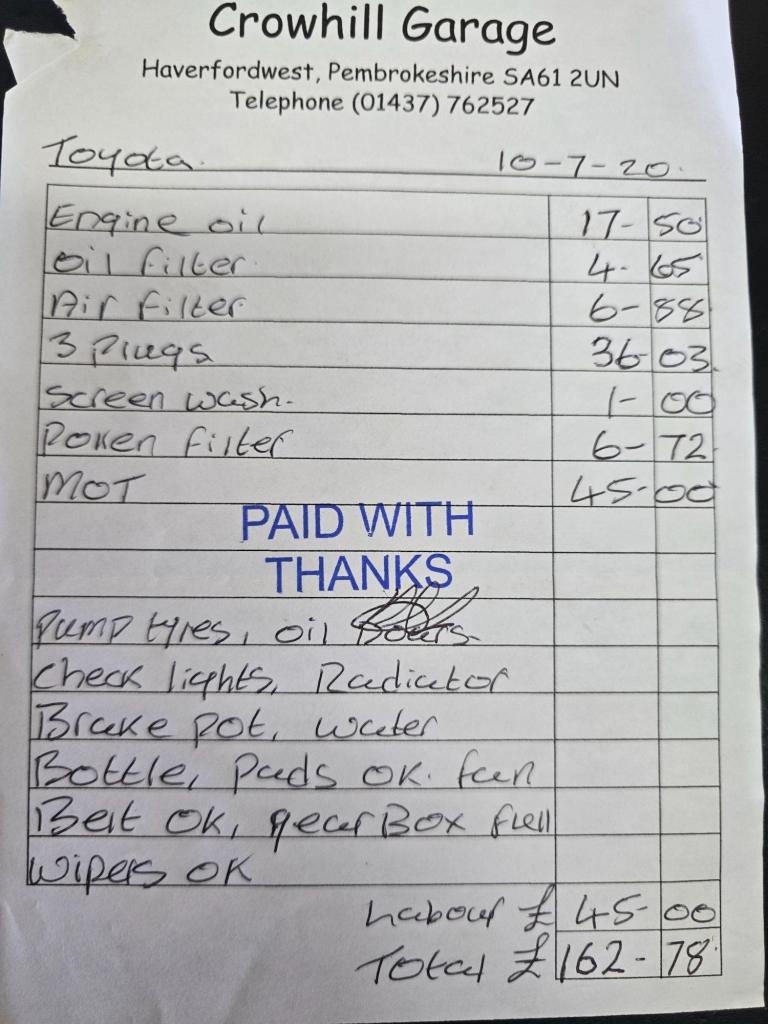 Crowhill Garage
Haverfordwest, Pembrokeshire SA61 2UN
Telephone (01437) 762527
Toyota. 10-7-20.
Engine oil 17- 50
Oil filter 4- 65
Air filter 6- 88
3 Plugs 36- 03
Screen wash. 1- 00
Polen filter 6- 72
MOT 45- 00
PAID WITH
THANKS
Pump tyres, oil Doors
Check lights, Radiator
Brake pot, water
Bottle, Pads OK. fan
Belt OK, gearBox full
Wipers OK
Labour £ 45- 00
Total £ 162- 78